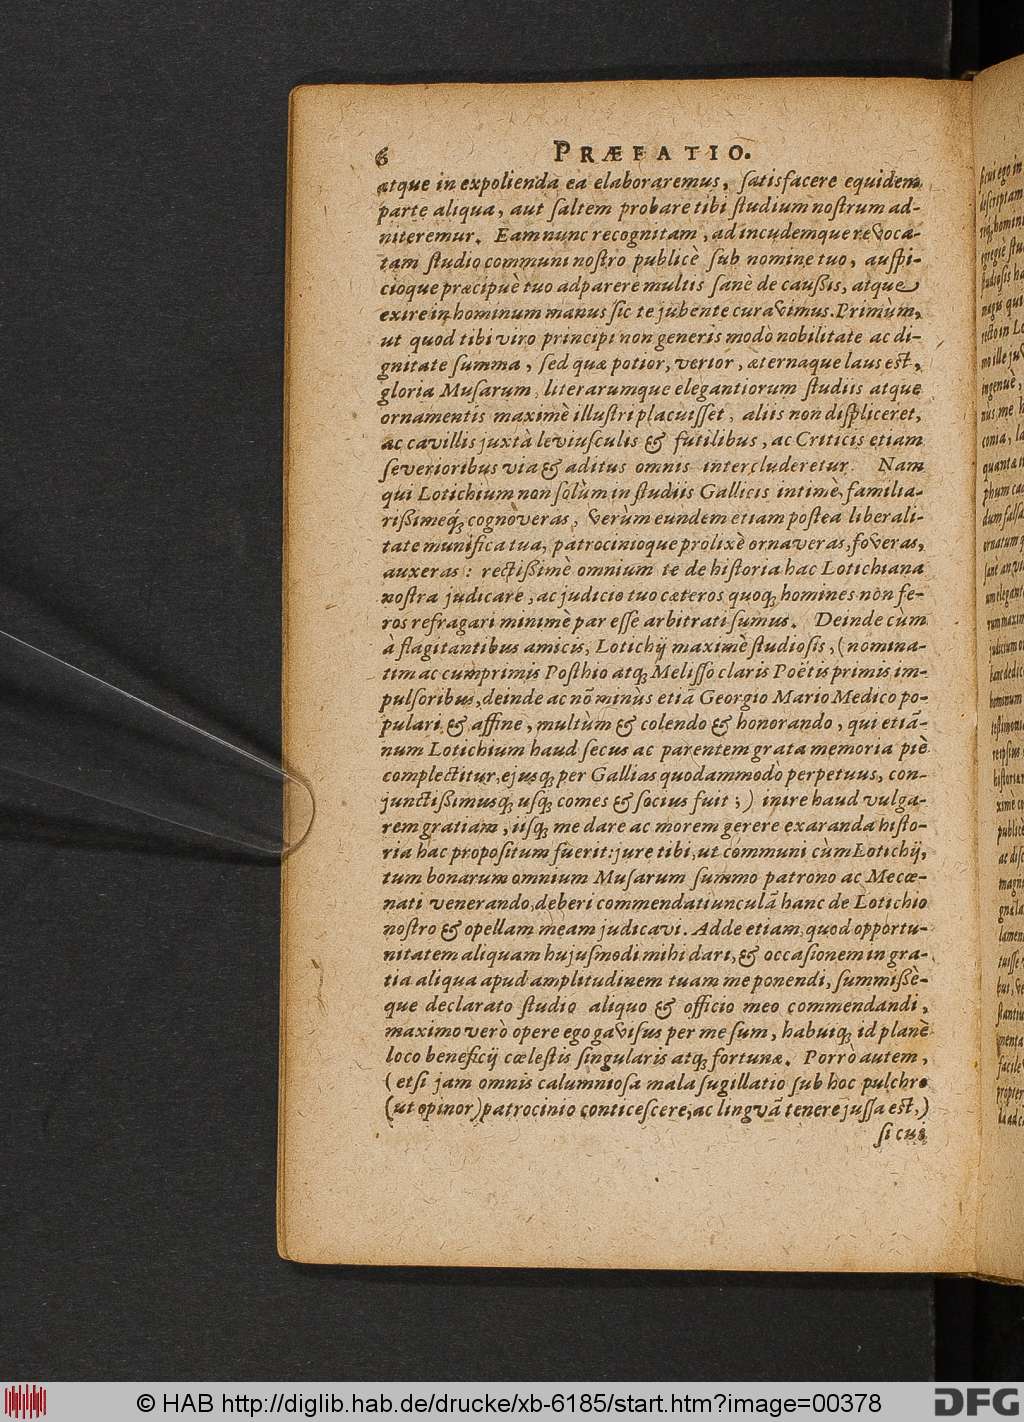 6 PRÆFATIO.
atque in expolienda ea elaboraremus, ſatisfacere equidem
parte aliqua, aut ſaltem probare tibi ſtudium noſtrum ad-
niteremur. Eam nunc recognitam, ad incudemque revoca-
tam ſtudio communi noſtro publicè ſub nomine tuo, auſpi-
cioque præcipuè tuo adparere multis ſanè de cauſſis, atque
exire in hominum manus ſic te jubente curavimus. Primùm,
ut quod tibi viro principi non generis modò nobilitate ac di-
gnitate ſumma, ſed quæ potior, verior, æternaque laus est,
gloria Muſarum, literarumque elegantiorum ſtudiis atque
ornamentis maximè illuſtri placuiſſet, aliis non diſpliceret,
ac cavillis juxtà leviuſculis & futilibus, ac Criticis etiam
ſeverioribus via & aditus omnis intercluderetur. Nam
qui Lotichium non ſolùm in ſtudiis Gallicis intimè, familia-
riſsimeq́; cognoveras, verùm eundem etiam poſtea liberali-
tate munifica tua, patrocinioque prolixè ornaveras, foveras,
auxeras: rectiſsimè omnium te de hiſtoria hac Lotichiana
noſtra judicare, ac judicio tuo cæteros quoq; homines non fe-
ros refragari minimè par eſſe arbitrati ſumus. Deinde cùm
à flagitantibus amicis, Lotichij maximè ſtudioſis, (nomina-
tim ac cumprimis Poſthio atq; Meliſſo claris Poëtis primis im-
pulſoribus, deinde ac nõ minùs etiã Georgio Mario Medico po-
pulari & affine, multùm & colendo & honorando, qui etiã-
num Lotichium haud ſecus ac parentem grata memoria piè
complectitur, ejusq; per Gallias quodammodò perpetuus, con-
junctiſsimusq; uſq; comes & ſocius fuit;) inire haud vulga-
rem gratiam, iisq; me dare ac morem gerere exaranda hiſto-
ria hac propoſitum fuerit: jure tibi, ut communi cùm Lotichij,
tum bonarum omnium Muſarum ſummo patrono ac Mecœ-
nati venerando, deberi commendatiunculã hanc de Lotichio
noſtro & opellam meam judicavi. Adde etiam, quod opportu-
nitatem aliquam hujuſmodi mihi dari, & occaſionem in gra-
tia aliqua apud amplitudinem tuam me ponendi, ſummiſsè-
que declarato ſtudio aliquo & officio meo commendandi,
maximo verò opere ego gaviſus per me ſum, habuiq; id planè
loco beneficij cœleſtis ſingularis atq; fortunæ. Porrò autem,
(etſi jam omnis calumnioſa mala ſugillatio ſub hoc pulchro
(ut opinor) patrocinio conticeſcere, ac linguã tenere juſſa est,)
ſi cui
© HAB http://diglib.hab.de/drucke/xb-6185/start.htm?image=00378
DFG